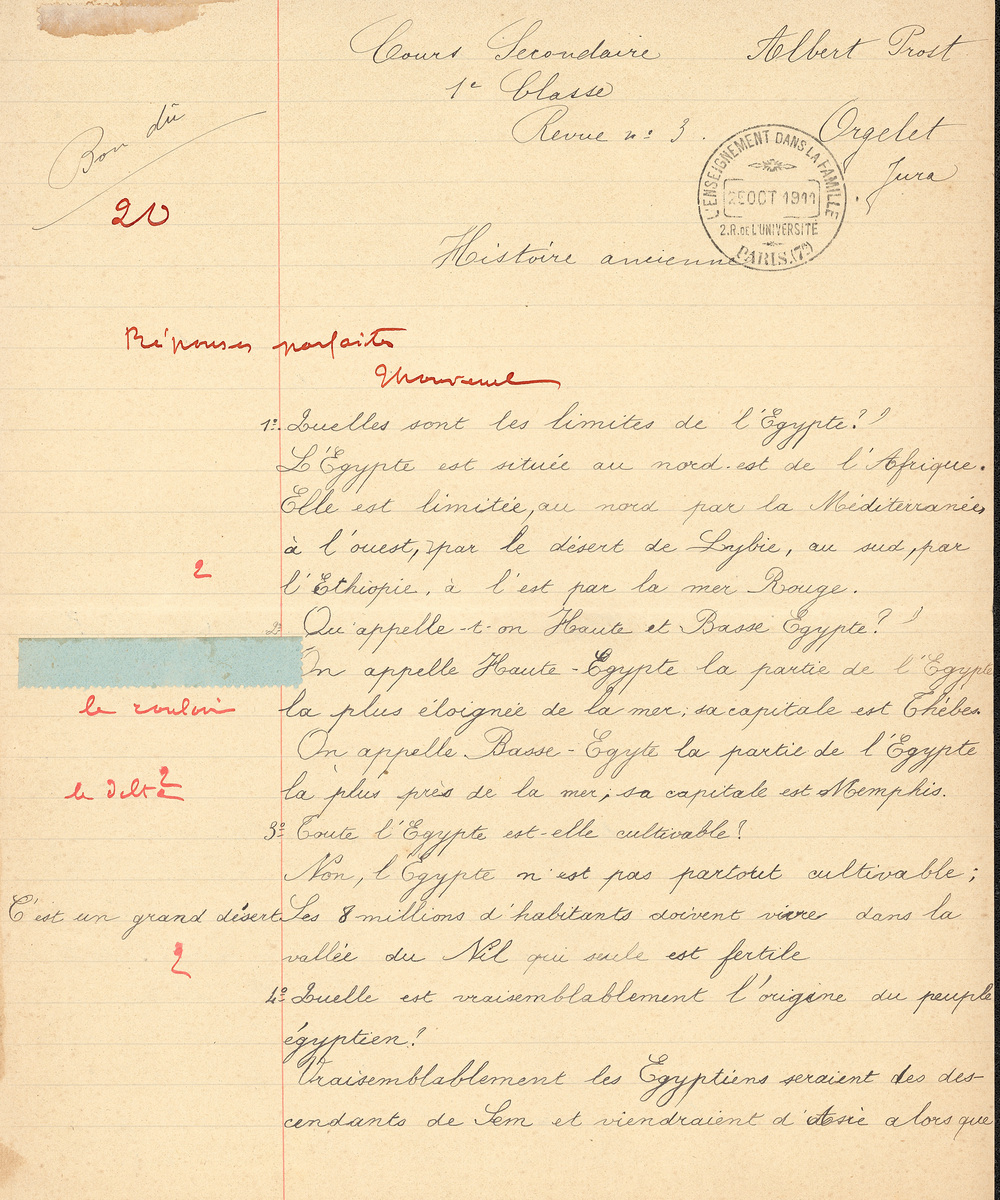 Cours Secondaire Albert Prost
1e Classe
Revue n: 3. Orgelet
Jura
Bon dû
20
L'ENSEIGNEMENT DANS LA FAMILLE
25 OCT 1911
2.R.DE L'UNIVERSITÉ
PARIS.(7e)
Histoire ancienne
Réponses parfaites
1o. Quelles sont les limites de l'Egypte?
L'Egypte est située au nord-est de l'Afrique.
Elle est limitée, au nord par la Méditerranée,
à l'ouest, par le désert de Lybie, au sud, par
2
l'Ethiopie, à l'est par la mer Rouge.
2o Qu'appelle-t-on Haute et Basse Egypte?
On appelle Haute-Egypte la partie de l'Egypte
le
la plus éloignée de la mer; sa capitale est Thèbes.
On appelle Basse-Egyte la partie de l'Egypte
le delta 2
la plus près de la mer; sa capitale est Memphis.
3o Toute l'Egypte est-elle cultivable?
Non, l'Egypte n'est pas partout cultivable;
C'est un grand désert. Les 8 millions d'habitants doivent vivre dans la
2
vallée du Nil qui seule est fertile
4o Quelle est vraisemblablement l'origine du peuple
égyptien?
Vraisemblablement les Egyptiens seraient des des-
cendants de Sem et viendraient d'Asie alors que